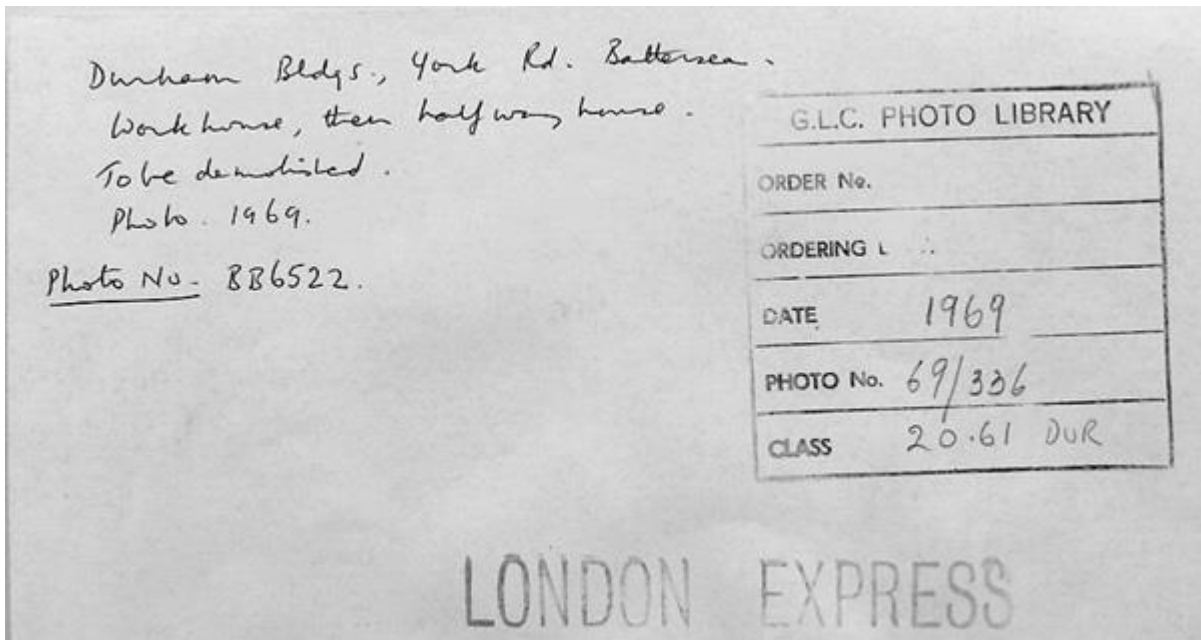 Durham Bldgs., York Rd. Battersea.
Workhouse, then halfway house.
To be demolished.
Photo. 1969.
Photo No. BB6522.
G.L.C. PHOTO LIBRARY
ORDER No.
ORDERING
DATE 1969
PHOTO No. 69/336
CLASS 20.61 DUR
LONDON EXPRESS